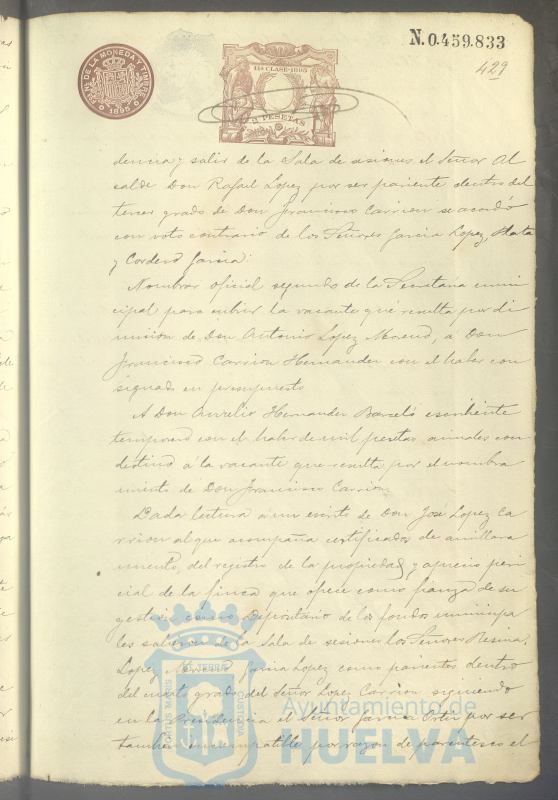 N.0.459.833
429
FÁB. DE LA MONEDA Y TIMBRE
1895
11ª CLASE-1895
PESETAS
dencia y salir de la Sala de sesiones el Señor Al
calde Don Rafael Lopez por ser pariente dentro del
tercer grado de Don Francisco Carrion se acordó
con voto contrario de los Señores Garcia Lopez, Plata
y Cordero Garcia:
Nombrar oficial segundo de la Secretaria muni
cipal para cubrir la vacante que resulta por di
mision de Don Antonio Lopez Moreno, á Don
Francisco Carrion Hernandez con el haber con
signado en presupuesto
A Don Aurelio Hernandez Barceló escribiente
temporero con el haber de mil pesetas anuales con
destino á la vacante que resulta por el nombra
miento de Don Francisco Carrion
Dada lectura á un escrito de Don José Lopez Ca
rrion al que acompaña certificados de amillara
miento, del registro de la propiedad y aprecio peri
cial de la finca que ofrece como fianza de su
gestion como Depositario de los fondos municipa
les salieron de la Sala de sesiones los Señores
Lopez Moreno y Garcia Lopez como parientes dentro
del cuarto grado del Señor Lopez Carrion siguiendo
en la Presidencia el Señor Garcia por ser
tambien incompatible por razon de parentesco el
Ayuntamiento de
HUELVA